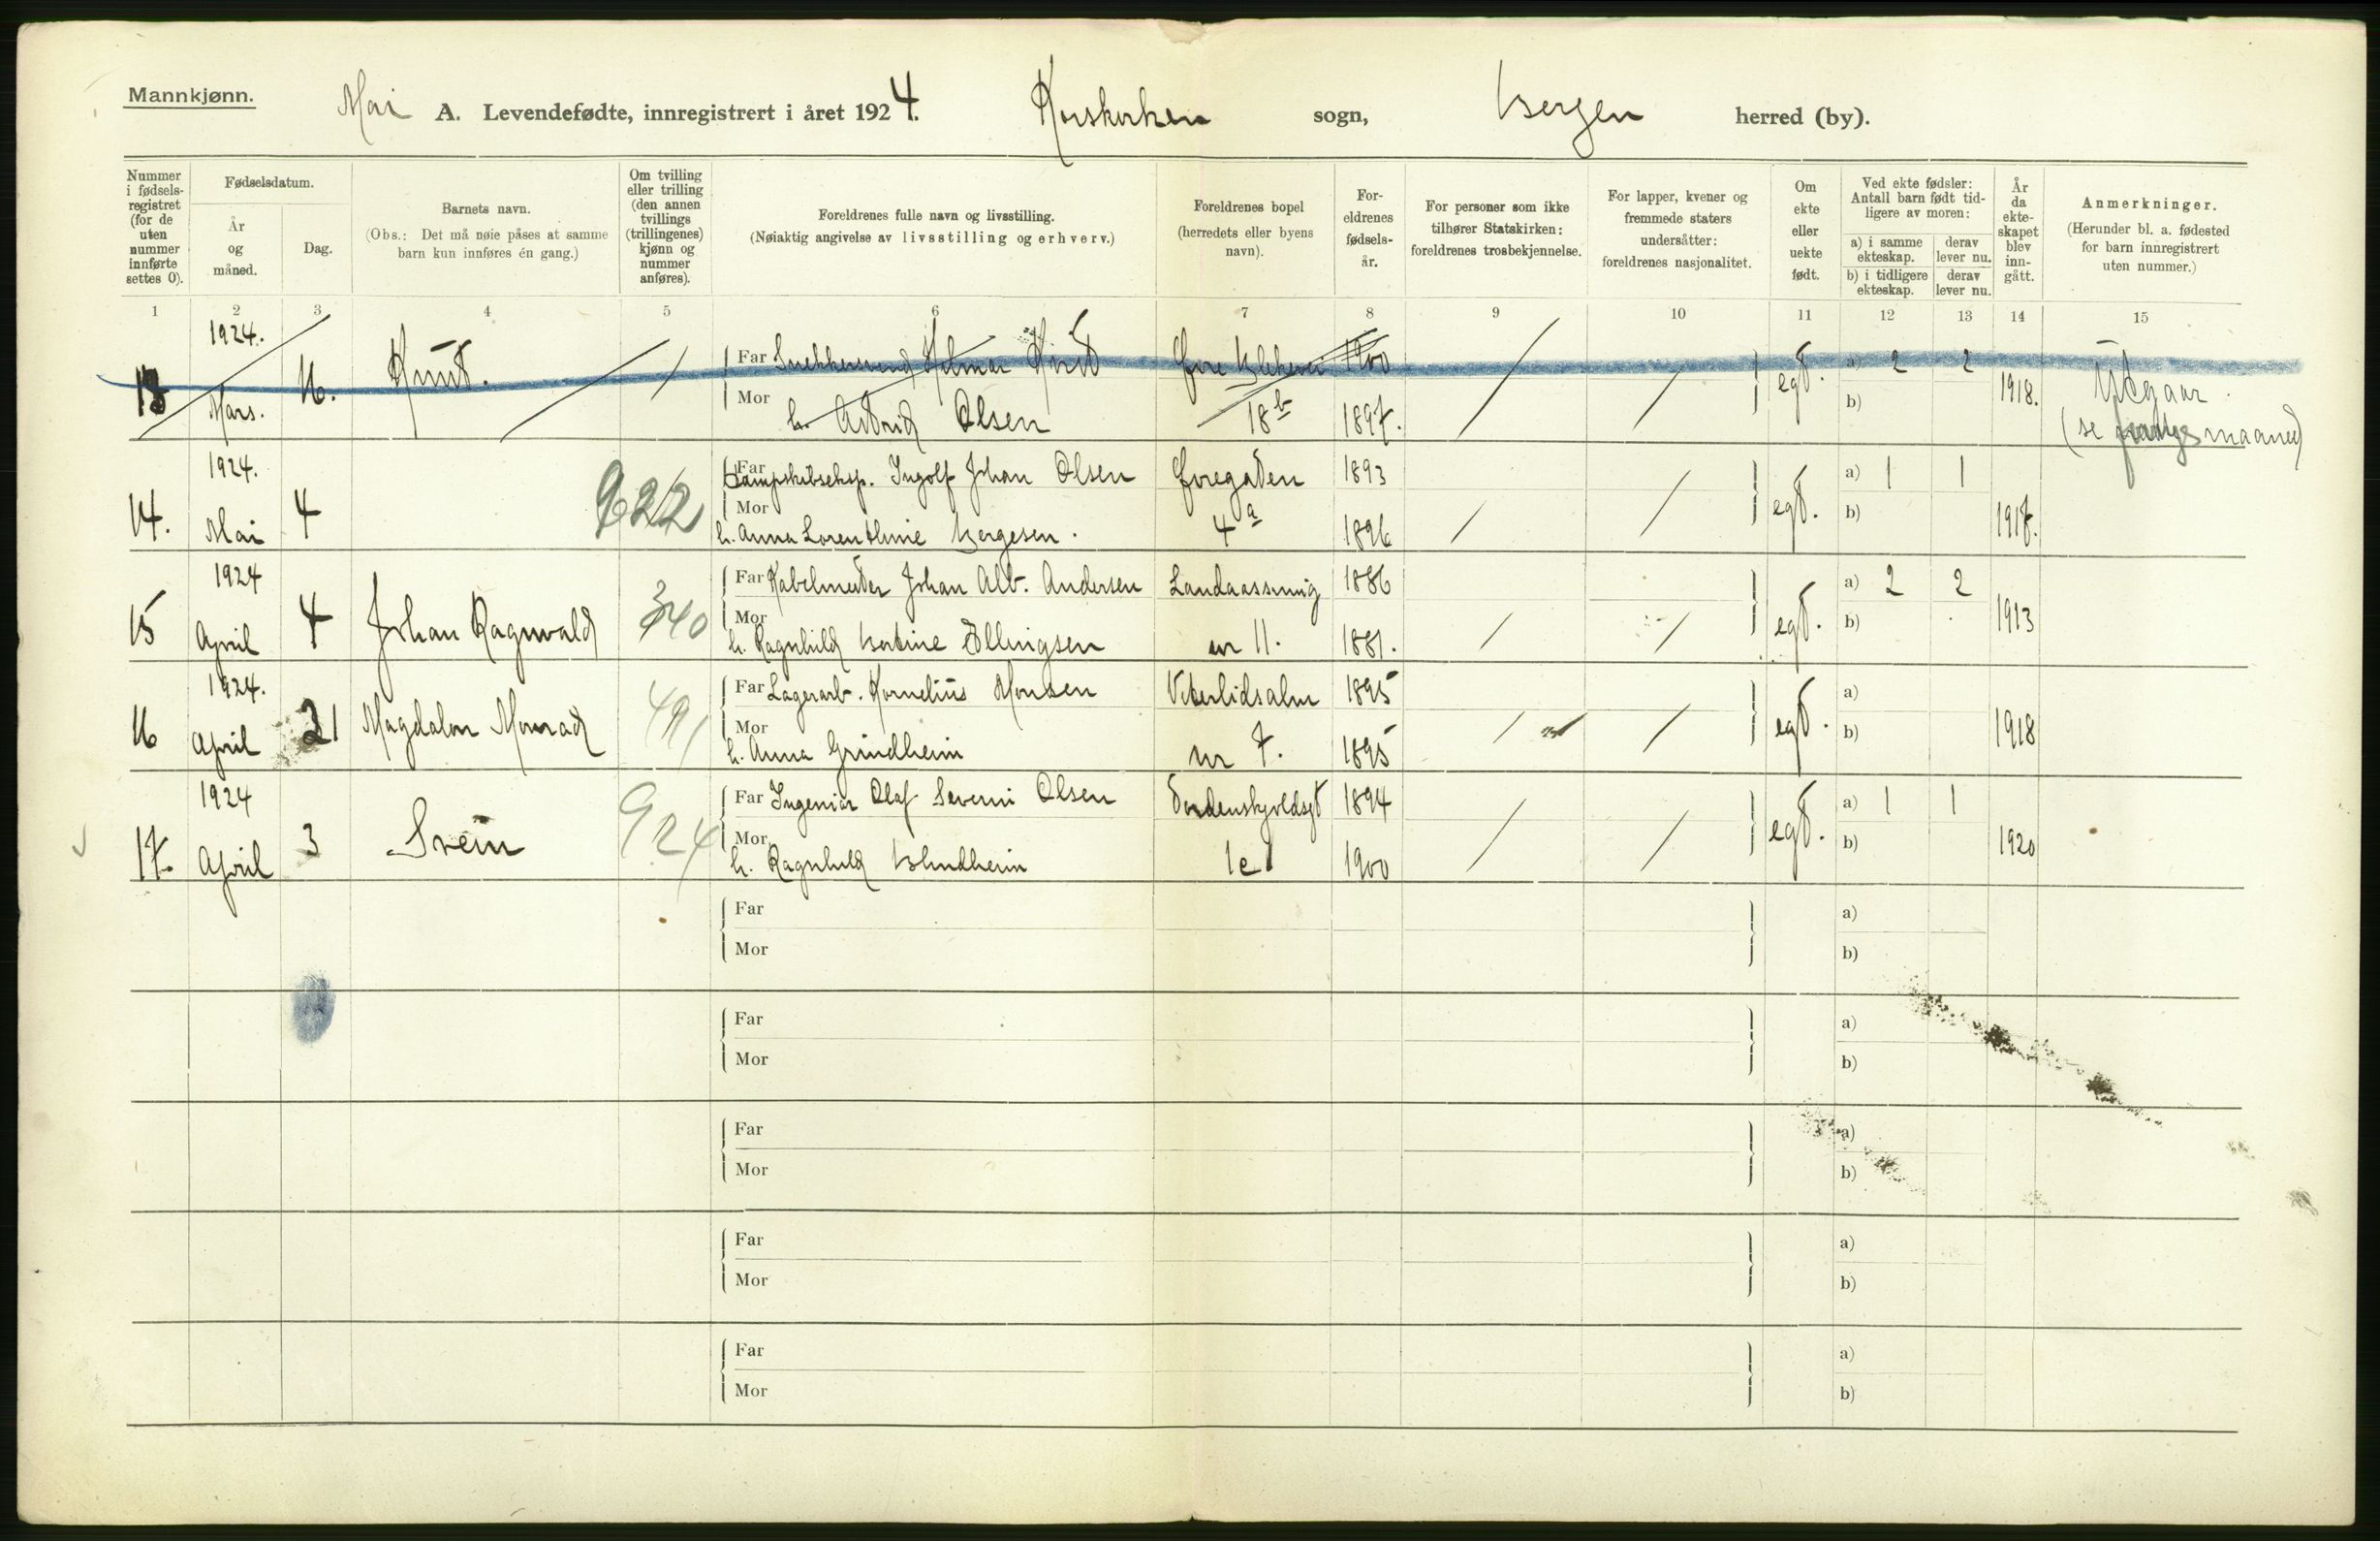 Mannkjønn.
Mai A. Levendefødte, innregistrert i året 1924. Korskirken sogn, Bergen herred (by).
Nummer i fødselsregistret (for de uten nummer innførte settes 0).
Fødselsdatum.
År og måned.
Dag.
Barnets navn.
(Obs.: Det må nøie påses at samme barn kun innføres én gang.)
Om tvilling eller trilling (den annen tvillings (trillingenes) kjønn og nummer anføres).
Foreldrenes fulle navn og livsstilling.
(Nøiaktig angivelse av livsstilling og erhverv.)
Foreldrenes bopel (herredets eller byens navn).
Foreldrenes fødselsår.
For personer som ikke tilhører Statskirken: foreldrenes trosbekjennelse.
For lapper, kvener og fremmede staters undersåtter: foreldrenes nasjonalitet.
Om ekte eller uekte født.
Ved ekte fødsler: Antall barn født tidligere av moren:
a) i samme ekteskap. derav lever nu.
b) i tidligere ekteskap. derav lever nu.
År da ekteskapet blev inngått.
Anmerkninger.
(Herunder bl. a. fødested for barn innregistrert uten nummer.)
1 2 3 4 5 6 7 8 9 10 11 12 13 14 15
13 1924. Mars. 16. Knud. / Far Snekkersvend Hilmar Øvre Blekevei 1900 / / egt. a) 2 2 1918. Utgaar.
Mor h. Astrid Olsen 18b 1897. b) (se maaned)
14. 1924. Mai 4 922 Far Dampskibseksp. Ingolf Johan Olsen Øvregaden 1893 / / egt. a) 1 1 1917.
Mor h. Anna Lorentine Bergesen. 4a 1896 b)
15 1924 April 4 Johan Ragnvald 340 Far Kabelmester Johan Alb. Andersen Landaassving 1886 / / egt. a) 2 2 1913
Mor h. Ragnhild Bertine Ellingsen nr 11. 1881. b)
16 1924. April 21 Magdalon Monrad 491 Far Lagerarb. Kornelius Monsen Vetrlidsalm 1895 / / egt. a) 1918
Mor h. Anna Grindheim nr 7. 1895 b)
17. 1924 April 3 Svein 924 Far Ingeniør Olaf Severin Olsen Tordenskjoldsgt 1894 / / egt. a) 1 1 1920
Mor h. Ragnhild Blindheim 1c 1900 b)
Far a)
Mor b)
Far a)
Mor b)
Far a)
Mor b)
Far a)
Mor b)
Far a)
Mor b)